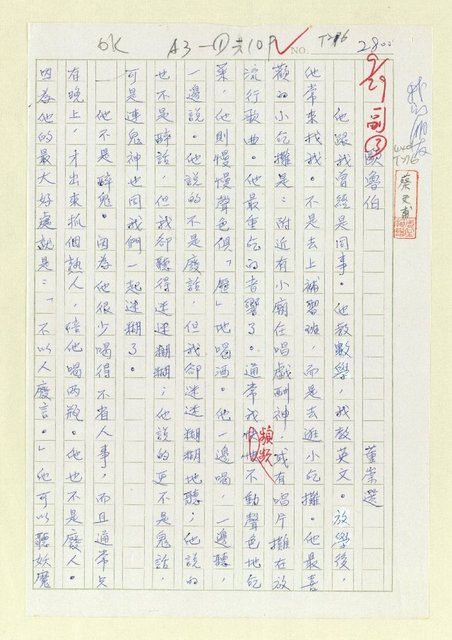 OK A3-①共10P NO. T276 2800
9/29 二副 ③
蔡文甫
歐魯伯
董崇選
他跟我曾經是同事。他教數學,我教英文。放學後,
他常來找我。不是去上補習班,而是去逛小吃攤。他最喜
歡的小吃攤是:附近有小廟在唱戲酬神,或有唱片攤在放
流行歌曲。他最重吃的音響了。通常我頻頻不動聲色地吃
菜,他則慢慢聲色俱「壓」地喝酒。他一邊喝,一邊
一邊說。他說的不是廢話,但我卻迷迷糊糊地聽;他說的
也不是醉話,但我卻聽得迷迷糊糊;他說的更不是鬼話,
可是連鬼神也同我們一起迷糊了。
他不是醉鬼。因為他很少喝得不省人事,而且通常只
有晚上,才出來抓個熟人,陪他喝兩瓶。他也不是廢人。
因為他的最大好處就是:「不以人廢言。」他可以聽妖魔